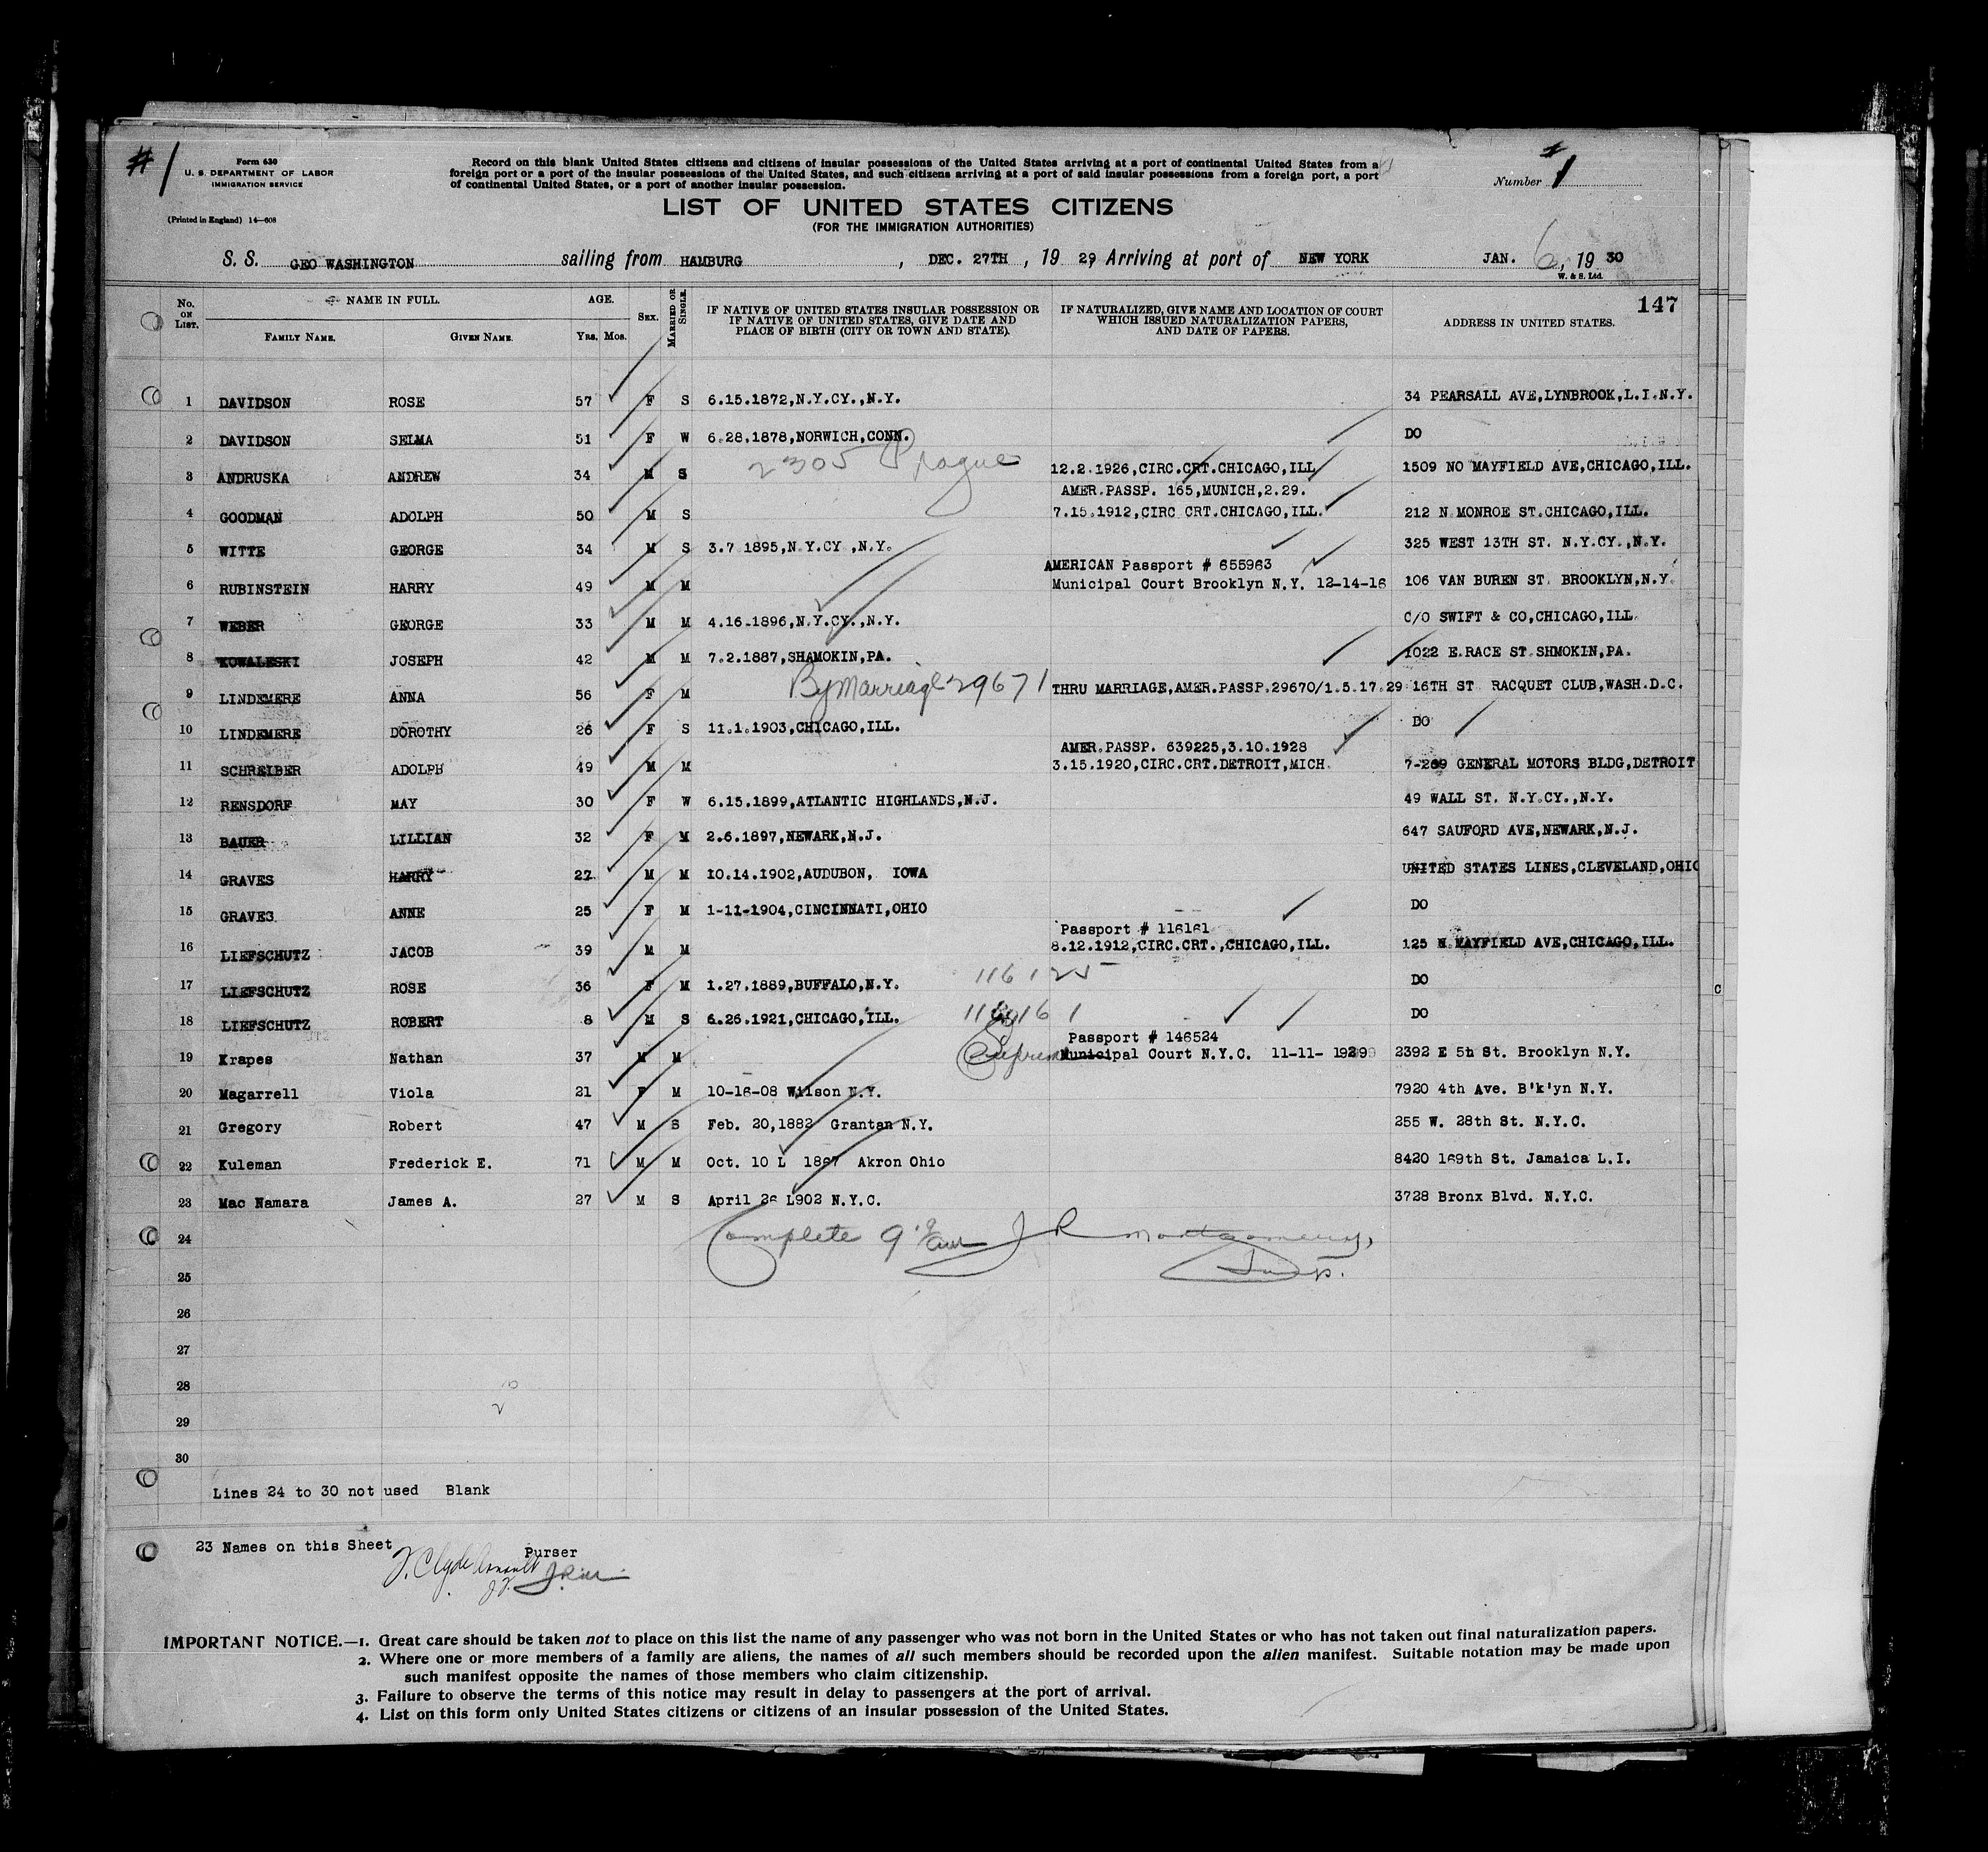 #1
Form 630
U. S. DEPARTMENT OF LABOR
IMMIGRATION SERVICE
(Printed in England) 14—608
Record on this blank United States citizens and citizens of insular possessions of the United States arriving at a port of continental United States from a
foreign port or a port of the insular possessions of the United States, and such citizens arriving at a port of said insular possessions from a foreign port, a port
of continental United States, or a port of another insular possession.
Number 1
LIST OF UNITED STATES CITIZENS
(FOR THE IMMIGRATION AUTHORITIES)
S. S. GEO WASHINGTON sailing from HAMBURG , DEC. 27TH , 19 29 Arriving at port of NEW YORK JAN. 6 , 19 30
W. & S. Ltd.
147
No. ON LIST. NAME IN FULL. FAMILY NAME. GIVEN NAME. AGE. Yrs. Mos. SEX. MARRIED OR SINGLE. IF NATIVE OF UNITED STATES INSULAR POSSESSION OR IF NATIVE OF UNITED STATES, GIVE DATE AND PLACE OF BIRTH (CITY OR TOWN AND STATE). IF NATURALIZED, GIVE NAME AND LOCATION OF COURT WHICH ISSUED NATURALIZATION PAPERS, AND DATE OF PAPERS. ADDRESS IN UNITED STATES.
1 DAVIDSON ROSE 57 F S 6.15.1872,N.Y.CY.,N.Y. 34 PEARSALL AVE,LYNBROOK,L.I.N.Y.
2 DAVIDSON SELMA 51 F W 6.28.1878,NORWICH,CONN. DO
2305 Prague
3 ANDRUSKA ANDREW 34 M S 12.2.1926,CIRC.CRT.CHICAGO,ILL 1509 NO MAYFIELD AVE,CHICAGO,ILL.
AMER.PASSP. 165,MUNICH,2.29.
4 GOODMAN ADOLPH 50 M S 7.15.1912,CIRC CRT.CHICAGO,ILL. 212 N MONROE ST.CHICAGO,ILL.
5 WITTE GEORGE 34 M S 3.7 1895,N.Y.CY ,N.Y. 325 WEST 13TH ST. N.Y.CY.,N.Y.
AMERICAN Passport # 655963
6 RUBINSTEIN HARRY 49 M M Municipal Court Brooklyn N.Y. 12-14-16 106 VAN BUREN ST. BROOKLYN,N.Y.
7 WEBER GEORGE 33 M M 4.16-1896,N.Y.CY.,N.Y. C/O SWIFT & CO,CHICAGO,ILL.
8 KOWALESKI JOSEPH 42 M M 7.2.1887,SHAMOKIN,PA. 1022 E.RACE ST.SHMOKIN,PA.
9 LINDEMERE ANNA 56 F M By Marriage 29671 THRU MARRIAGE,AMER.PASSP.29670/1.5.17.29 16TH ST RACQUET CLUB,WASH.D.C.
10 LINDEMERE DOROTHY 26 F S 11.1.1903,CHICAGO,ILL. DO
AMER.PASSP. 639225,3.10.1928
11 SCHREIBER ADOLPH 49 M M 3.15.1920,CIRC.CRT.DETROIT,MICH. 7-269 GENERAL MOTORS BLDG,DETROIT
12 RENSDORF MAY 30 F W 6.15.1899,ATLANTIC HIGHLANDS,N.J. 49 WALL ST. N.Y.CY.,N.Y.
13 BAUER LILLIAN 32 F M 2.6.1897,NEWARK,N.J. 647 SAUFORD AVE,NEWARK,N.J.
14 GRAVES HARRY 27 M M 10.14.1902,AUDUBON, IOWA UNITED STATES LINES,CLEVELAND,OHIO
15 GRAVES ANNE 25 F M 1-11-1904,CINCINNATI,OHIO DO
Passport # 116161
16 LIEFSCHUTZ JACOB 39 M M 8.12.1912,CIRC.CRT.,CHICAGO,ILL. 125 N.MAYFIELD AVE,CHICAGO,ILL.
17 LIEFSCHUTZ ROSE 36 F M 1.27.1889,BUFFALO,N.Y. 116125 DO
18 LIEFSCHUTZ ROBERT 8 M S 6.26.1921,CHICAGO,ILL. DO
Passport # 146524
19 Krapes Nathan 37 M M Supreme Municipal Court N.Y.C. 11-11- 1929 2392 E 5h St. Brooklyn N.Y.
20 Magarrell Viola 21 F M 10-16-08 Wilson N.Y. 7920 4th Ave. B'k'yn N.Y.
21 Gregory Robert 47 M S Feb. 20,1882 Grantan N.Y. 255 W. 28th St. N.Y.C.
22 Kuleman Frederick E. 71 M M Oct. 10 L 1867 Akron Ohio 8420 169th St. Jamaica L.I.
23 Mac Namara James A. 27 M S April 26 L902 N.Y.C. 3728 Bronx Blvd. N.Y.C.
24 Complete J R Montgomery,
25 Insp.
26
27
28
29
30
Lines 24 to 30 not used Blank
23 Names on this Sheet
Purser
IMPORTANT NOTICE.—1. Great care should be taken not to place on this list the name of any passenger who was not born in the United States or who has not taken out final naturalization papers.
2. Where one or more members of a family are aliens, the names of all such members should be recorded upon the alien manifest. Suitable notation may be made upon
such manifest opposite the names of those members who claim citizenship.
3. Failure to observe the terms of this notice may result in delay to passengers at the port of arrival.
4. List on this form only United States citizens or citizens of an insular possession of the United States.